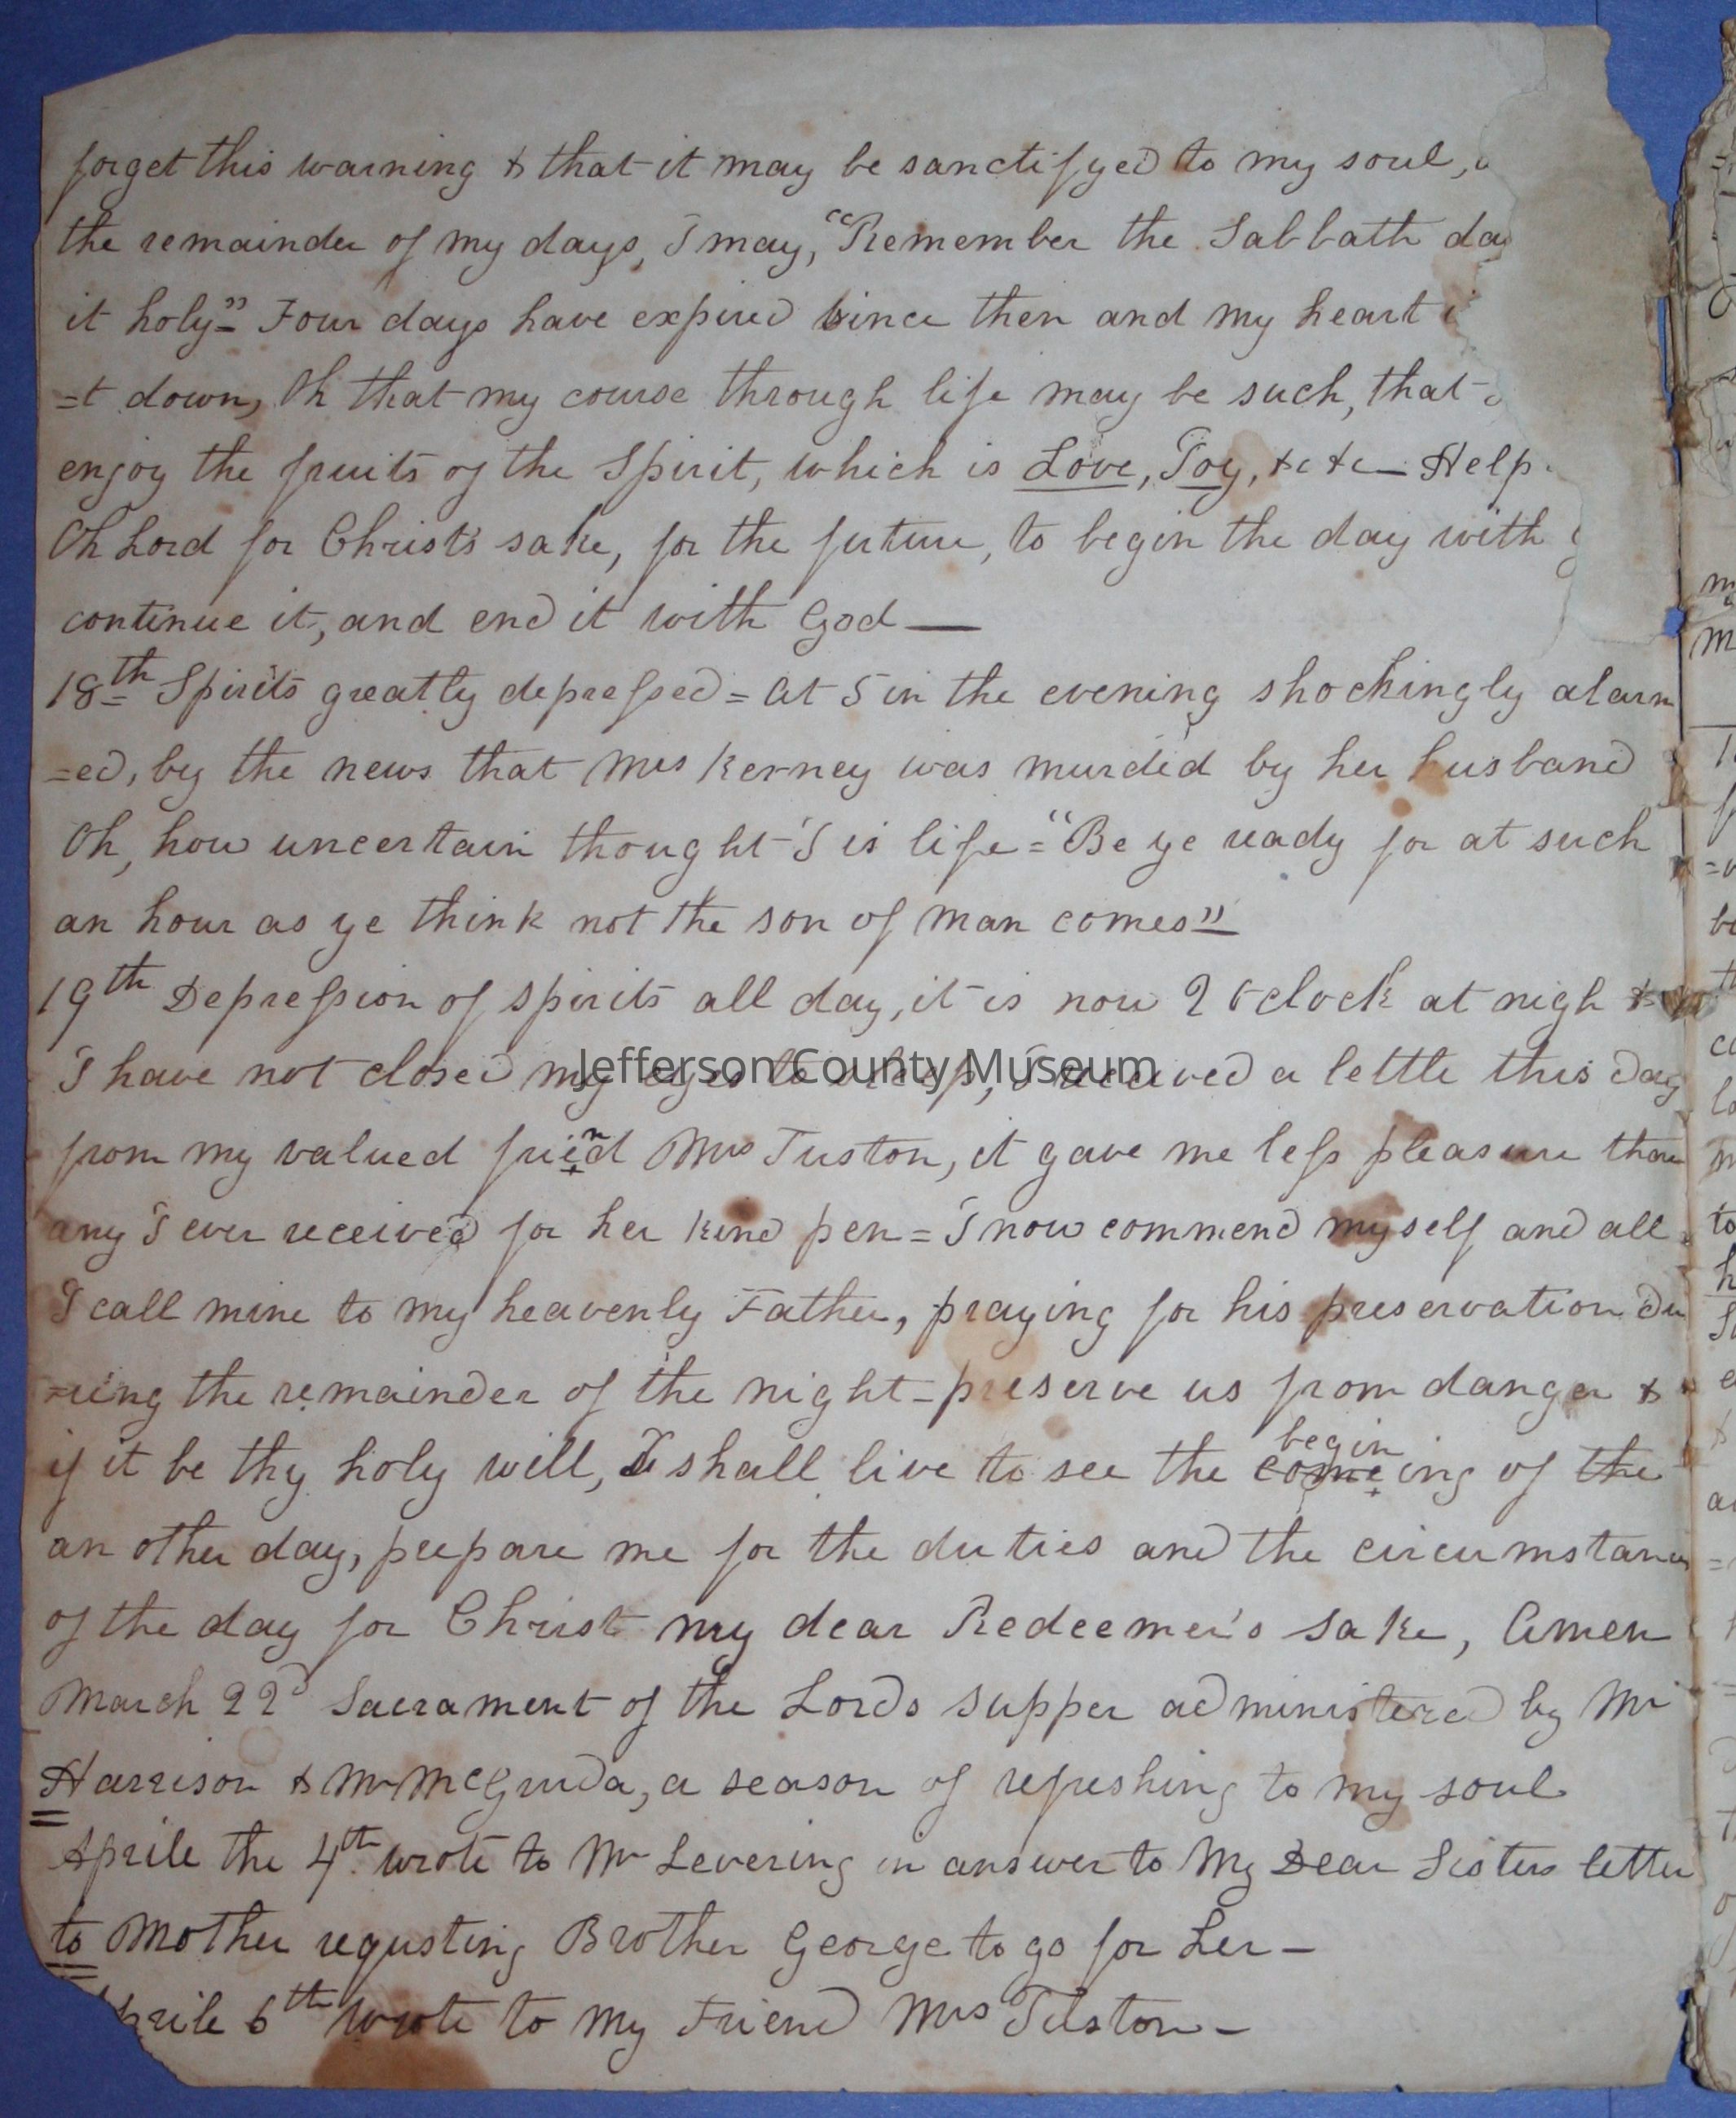 forget this warning & that it may be sanctifyed to my soul,
the remainder of my days, I may, "Remember the Sabbath day
it holy" Four days have expired since then and my heart
=t down, Oh that my course through life may be such, that
enjoy the fruits of the Spirit, which is Love, Joy, &c &c — Help
Oh Lord for Christ's sake, for the future, to begin the day with
continue it, and end it with God —
18th Spirits greatly depressed = At 5 in the evening shockingly alarm
=ed, by the news that Mrs Kerney was murded by her husband
Oh, how uncertain thought I is life = "Be ye ready for at such
an hour as ye think not the son of man comes"
19th Depression of spirits all day, it is now 2 oclock at nigh &
I have not closed my eyes to sleep, I received a lettle this day
from my valued friend Mrs Tuston, it gave me less pleasure than
any I ever received for her kind pen = I now commend myself and all
I call mine to my heavenly Father, praying for his preservation du
=ring the remainder of the night - preserve us from danger &
begin
if it be thy holy will, I shall live to see the comeing of the
an other day, prepare me for the duties and the circumstances
of the day for Christ my dear Redeemer's sake, Amen
March 22d Sacrament of the Lords supper administered by Mr
Harrison & Mr McGruda, a season of refreshing to my soul
Aprile the 4th wrote to Mr Levering in answer to My Dear Sisters letter
to Mother requsting Brother George to go for her -
Aprile 6th wrote to my Friend Mrs Tuston -
Jefferson County Museum